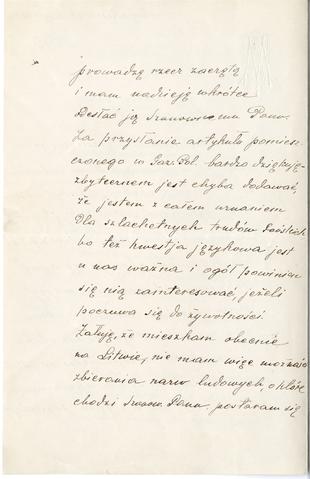 prowadzę rzecz zaczętą
i mam nadzieję wkrótce
Desłać ją Szanownemu Panu.
Za przysłanie artykułu pomiesz-
czonego w Gaz. Pol. bardzo dziękuję
zbytecznem jest chyba dodawać,
że jestem z całem uznaniem
dla szlachetnych trudów Pańskich
bo też kwestja językowa jest
u nas ważna i ogół powinien
się nią zainteresować, jeżeli
poczuwa się do żywotności
Żałuję, że mieszkam obecnie
na Litwie, nie mam więc możności
zbierania nazw ludowych, o które
chodzi Szanow. Panu. postaram się